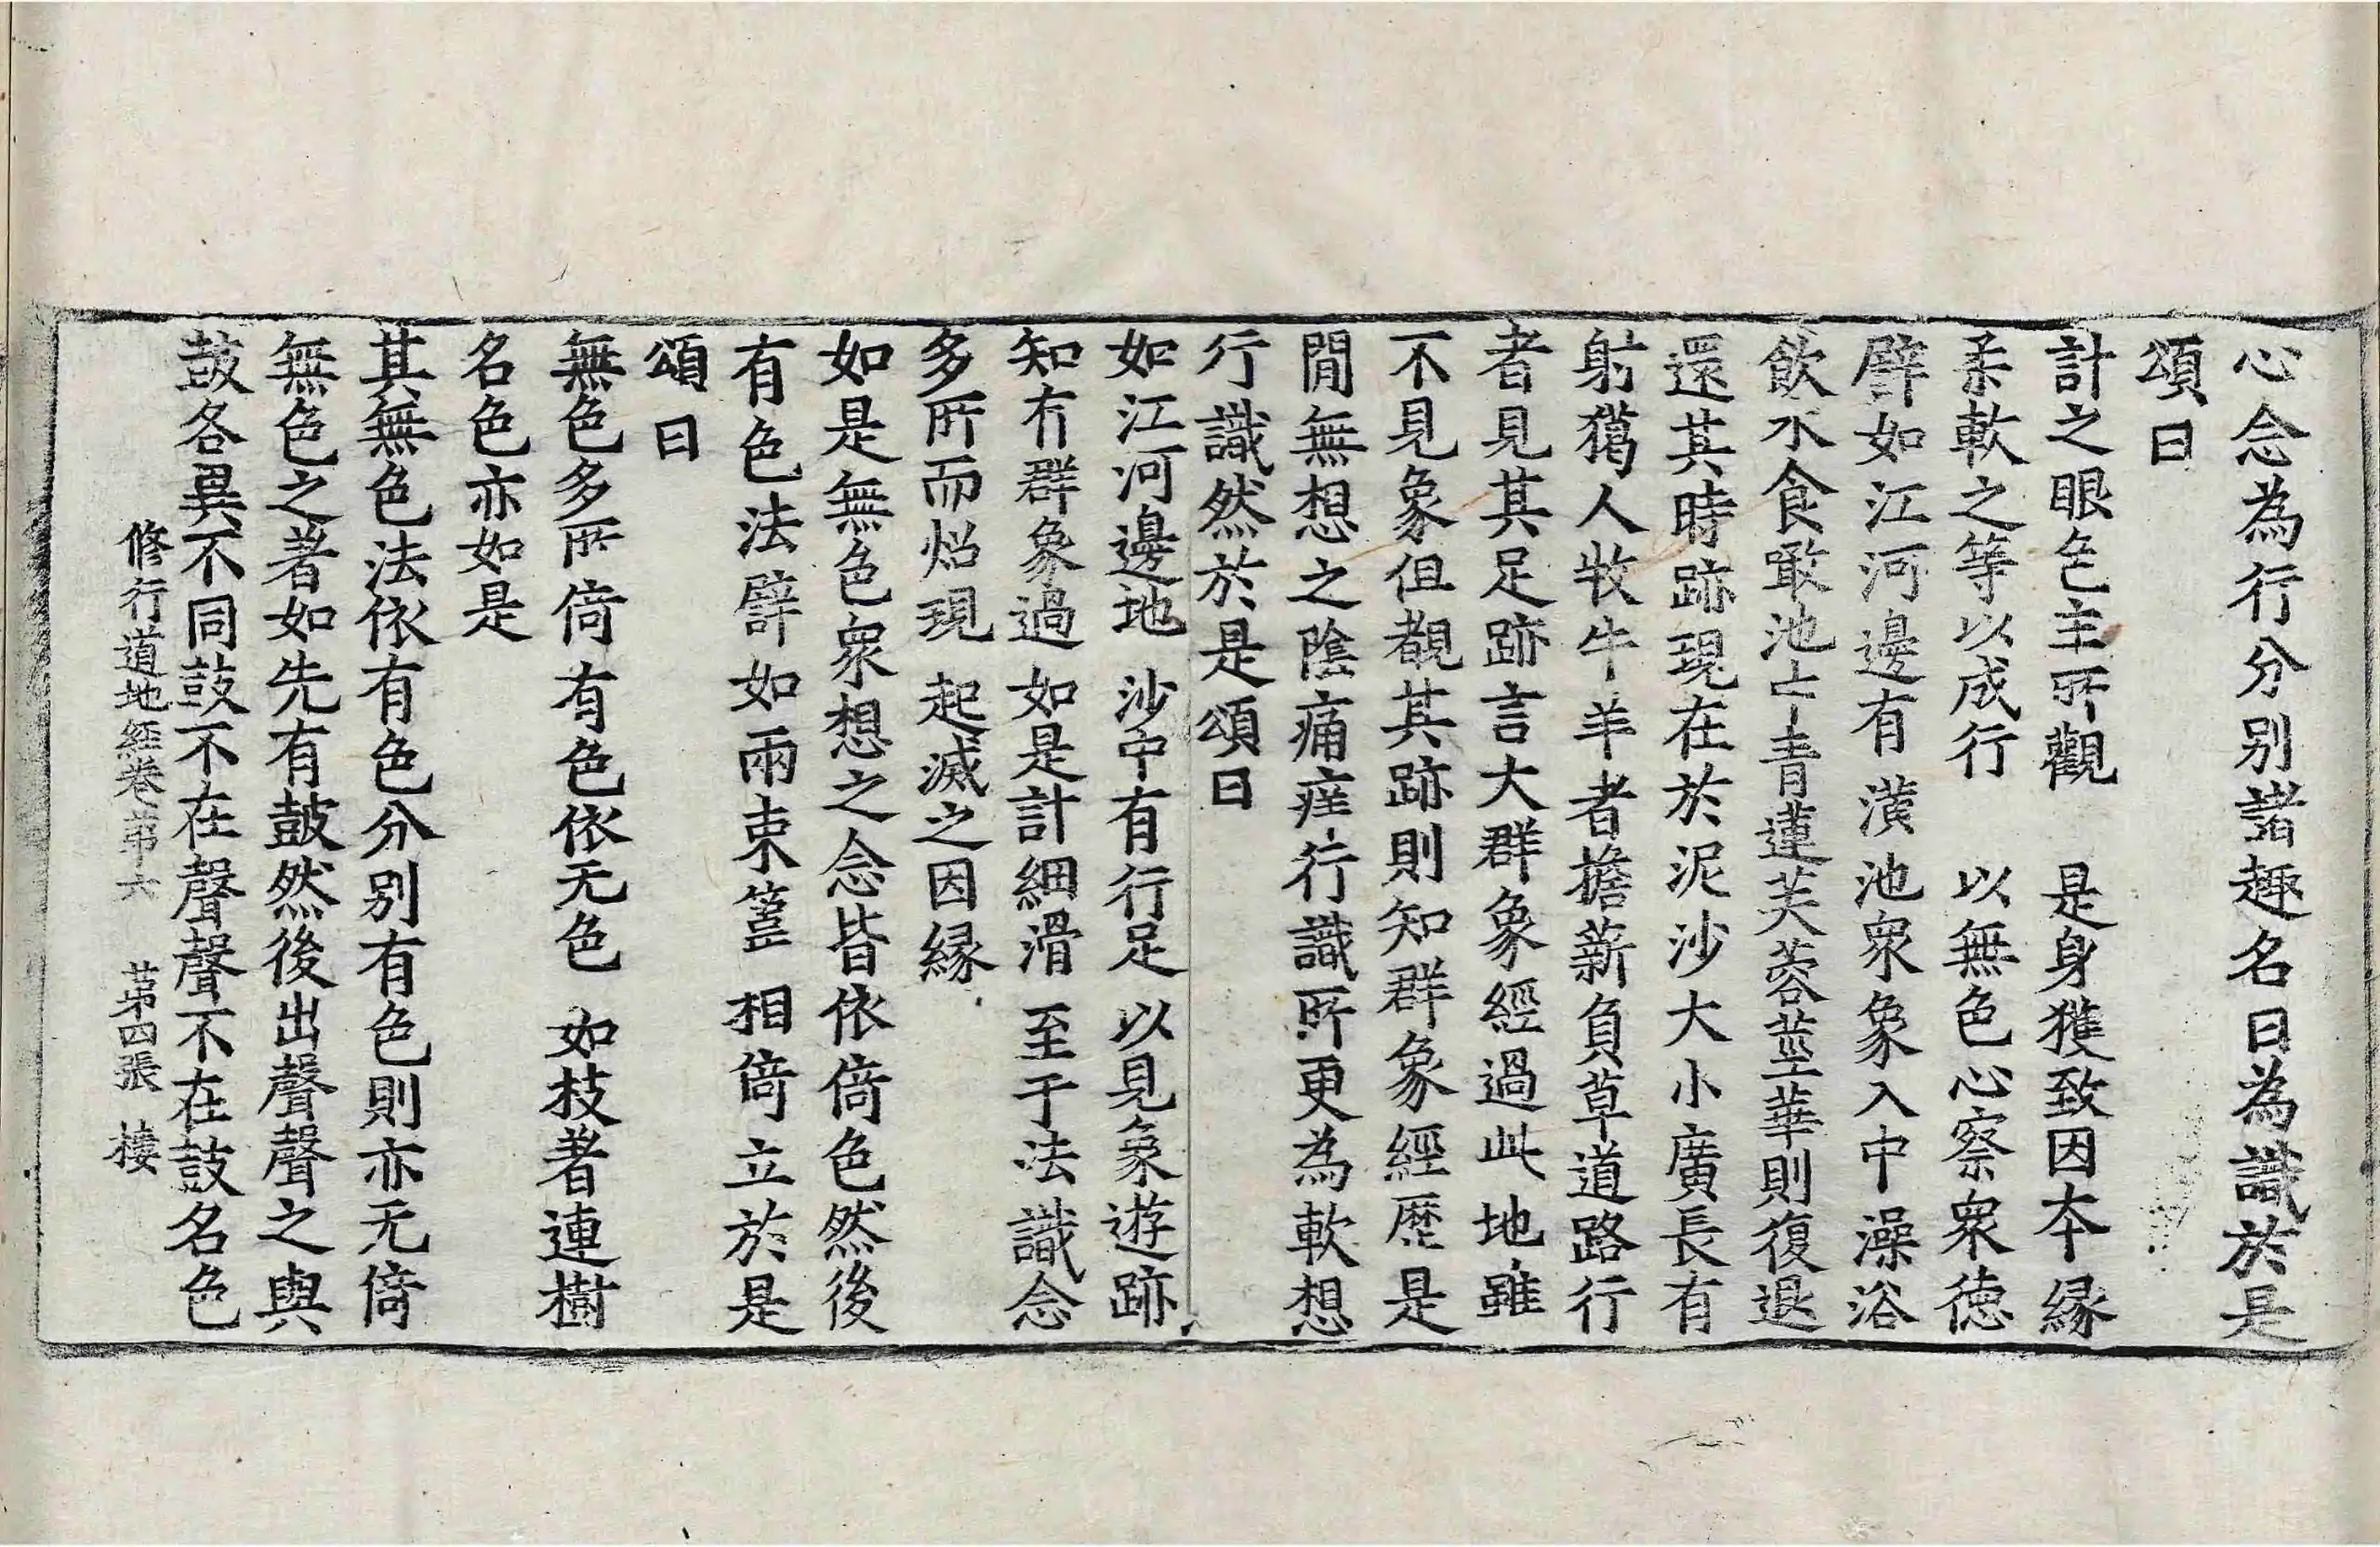 心念為行分別諸趣名曰為識於是
頌曰
計之眼色主所觀　是身獲致因本緣
柔軟之等以成行　以無色心察衆德
譬如江河邊有潢池衆象入中澡浴
飲水食噉池中青蓮芙蓉莖華則復退
還其時跡現在於泥沙大小廣長有
射獦人牧牛羊者擔薪負草道路行
者見其足跡言大群象經過此地雖
不見象但覩其跡則知群象經歷是
閒無想之陰痛痒行識所更為軟想
行識然於是頌曰
如江河邊地　沙中有行足　以見象遊跡
知有群象過　如是計細滑　至于法識念
多所而炤現　起滅之因緣
如是無色衆想之念皆依倚色然後
有色法譬如兩束簺相倚立於是
頌曰
無色多所倚有色依无色　如枝著連樹
名色亦如是
其無色法依有色分別有色則亦无倚
無色之著如先有鼓然後出聲聲之與
鼓各異不同鼓不在聲聲不在鼓名色
修行道地經卷苐六　苐四張　棲